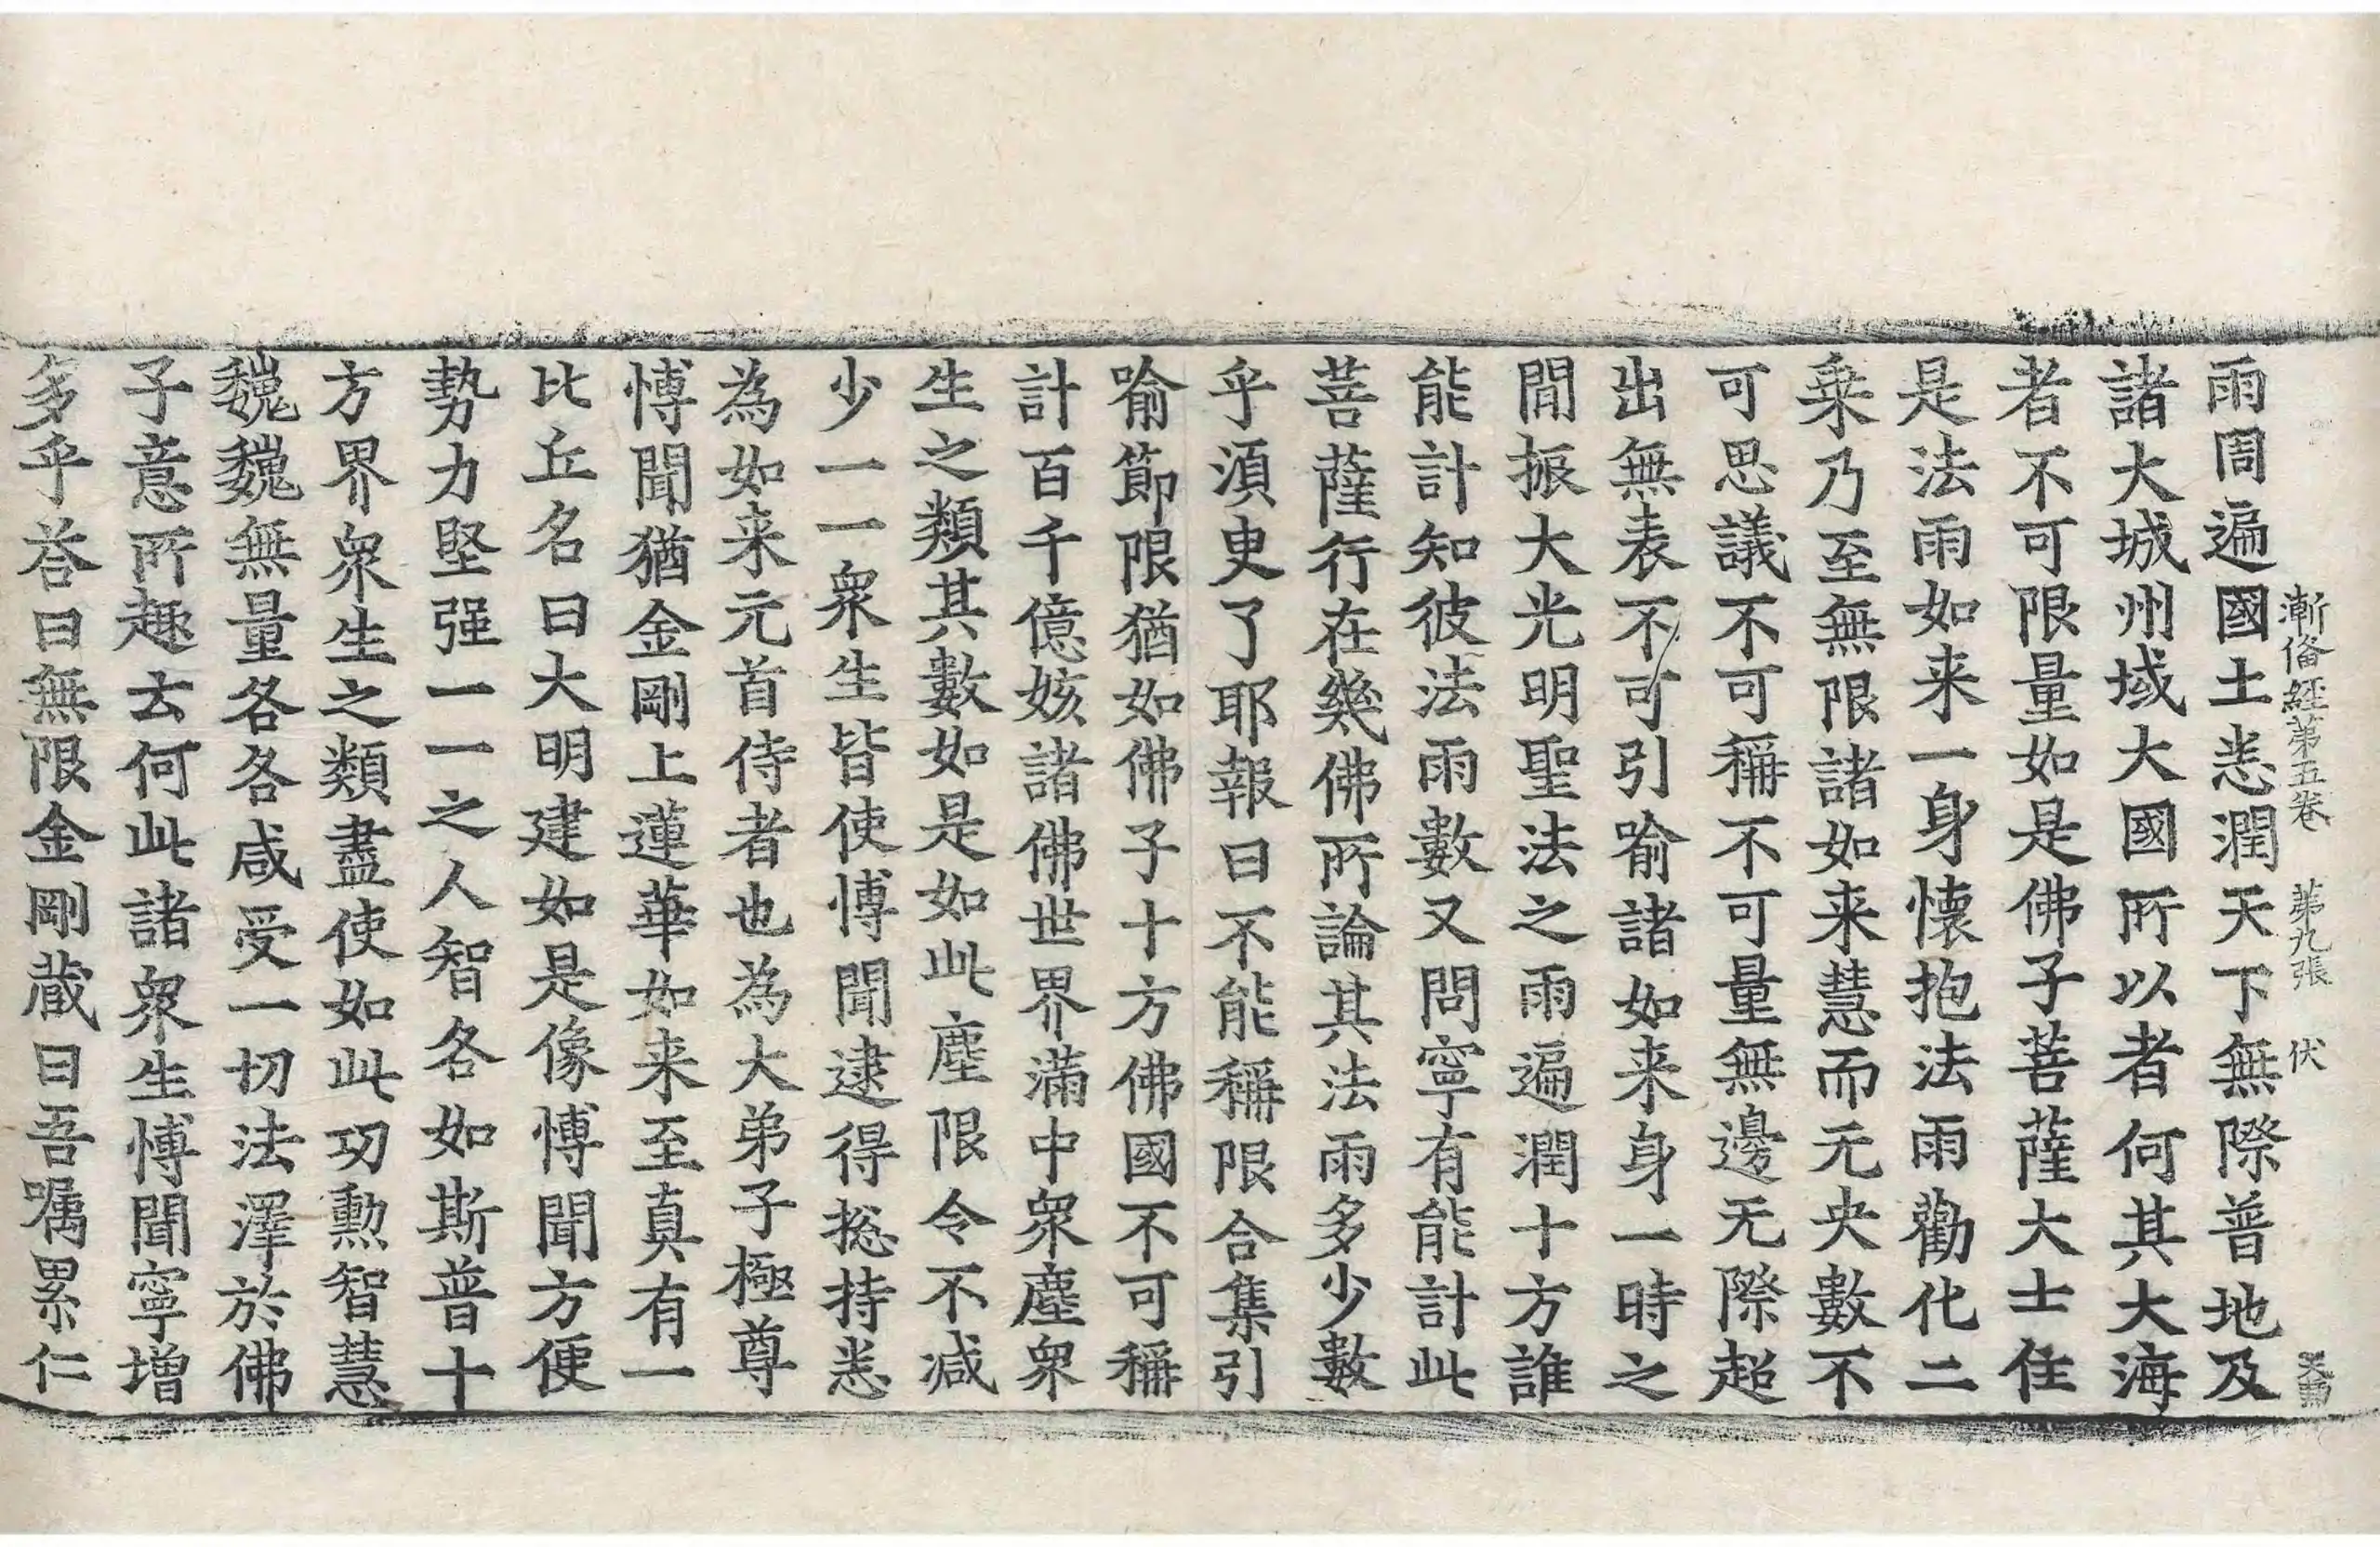 漸俻經第五卷　第九張　伏
雨周遍國土悉潤天下無際普地及
諸大城州域大國所以者何其大海
者不可限量如是佛子菩薩大士住
是法雨如来一身懷抱法雨勸化二
乗乃至無限諸如来慧而无央數不
可思議不可稱不可量無邊无際超
出無表不可引喻諸如来身一時之
閒振大光明聖法之雨遍潤十方誰
能計知彼法雨數又問寧有能計此
菩薩行在幾佛所論其法雨多少數
乎湏臾了耶報曰不能稱限合集引
喻節限猶如佛子十方佛國不可稱
計百千億姟諸佛世界滿中衆塵衆
生之類其數如是如此塵限令不減
少一一衆生皆使博聞逮得摠持悉
為如来元首侍者也為大弟子極尊
博聞猶金剛上蓮華如来至真有一
比丘名曰大明建如是像博聞方便
勢力堅强一一之人智各如斯普十
方界衆生之類盡使如此功勲智慧
魏魏無量各各咸受一切法澤於佛
子意所趣去何此諸衆生博聞寧增
多乎荅曰無限金剛蔵曰吾嘱累仁